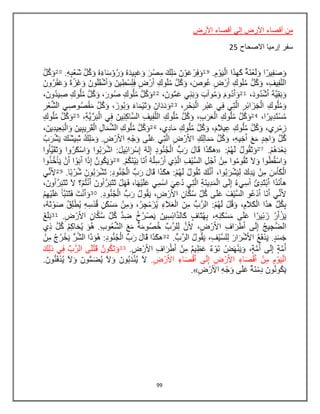 من أقصاء الأرض إلى أقصاء الأرض
سفر إرميَا الاصحاح 25
وَصَفِيرًا وَلَعْنَةً كَهذَا الْيَوْمِ. وَفِرْعَوْنَ مَلِكَ مِصْرَ وَعَبِيدَهُ وَرُؤَسَاءَهُ وَكُلَّ شَعْبِهِ. وَكُلَّ
اللَّفِيفِ، وَكُلَّ مُلُوكِ أَرْضِ عُوصَ، وَكُلَّ مُلُوكِ أَرْضِ فِلِسْطِينَ وَأَشْقَلُونَ وَغَزَّةَ وَعَقْرُونَ
وَبَقِيَّةَ أَشْدُودَ، وَأَدُومَ وَمُوآبَ وَبَنِي عَمُّونَ، وَكُلَّ مُلُوكِ صُورَ، وَكُلَّ مُلُوكِ صِيدُونَ،
وَمُلُوكِ الْجَزَائِرِ الَّتِي فِي عَبْرِ الْبَحْرِ، وَدَدَانَ وَتَيْمَاءَ وَبُوزَ، وَكُلَّ مَقْصُوصِي الشَّعْرِ
مُسْتَدِيرًا، وَكُلَّ مُلُوكِ الْعَرَبِ، وَكُلَّ مُلُوكِ اللَّفِيفِ السَّاكِنِينَ فِي الْبَرِّيَّةِ، وَكُلَّ مُلُوكِ
زِمْرِي، وَكُلَّ مُلُوكِ عِيلاَمَ، وَكُلَّ مُلُوكِ مَادِي، وَكُلَّ مُلُوكِ الشِّمَالِ الْقَرِيبِينَ وَالْبَعِيدِينَ،
كُلَّ وَاحِدٍ مَعَ أَخِيهِ، وَكُلَّ مَمَالِكِ الأَرْضِ الَّتِي عَلَى وَجْهِ الأَرْضِ. وَمَلِكُ شِيشَكَ يَشْرَبُ
بَعْدَهُمْ. وَتَقُولُ لَهُمْ: «هكَذَا قَالَ رَبُّ الْجُنُودِ إِلهُ إِسْرَائِيلَ: اشْرَبُوا وَاسْكَرُوا وَتَقَيَّأُوا
وَاسْقُطُوا وَلاَ تَقُومُوا مِنْ أَجْلِ السَّيْفِ الَّذِي أُرْسِلُهُ أَنَا بَيْنَكُمْ. وَيَكُونُ إِذَا أَبَوْا أَنْ يَأْخُذُوا
الْكَأْسَ مِنْ يَدِكَ لِيَشْرَبُوا، أَنَّكَ تَقُولُ لَهُمْ: هكَذَا قَالَ رَبُّ الْجُنُودِ: تَشْرَبُونَ شُرْبًا. لأَنِّي
هأَنَذَا أَبْتَدِئُ أُسِيءُ إِلَى الْمَدِينَةِ الَّتِي دُعِيَ اسْمِي عَلَيْهَا، فَهَلْ تَتَبَرَّأُونَ أَنْتُمْ؟ لاَ تَتَبَرَّأُونَ،
لأَنِّي أَنَا أَدْعُو السَّيْفَ عَلَى كُلِّ سُكَّانِ الأَرْضِ، يَقُولُ رَبُّ الْجُنُودِ. وَأَنْتَ فَتَنَبَّأْ عَلَيْهِمْ
بِكُلِّ هذَا الْكَلاَمِ، وَقُلْ لَهُمُ: الرَّبُّ مِنَ الْعَلاَءِ يُزَمْجِرُ، وَمِنْ مَسْكَنِ قُدْسِهِ يُطْلِقُ صَوْتَهُ،
يَزْأَرُ زَئِيرًا عَلَى مَسْكَنِهِ، بِهُتَافٍ كَالدَّائِسِينَ يَصْرُخُ ضِدَّ كُلِّ سُكَّانِ الأَرْضِ. بَلَغَ
الضَّجِيجُ إِلَى أَطْرَافِ الأَرْضِ، لأَنَّ لِلرَّبِّ خُصُومَةً مَعَ الشُّعُوبِ. هُوَ يُحَاكِمُ كُلَّ ذِي
جَسَدٍ. يَدْفَعُ الأَشْرَارَ لِلسَّيْفِ، يَقُولُ الرَّبُّ. هكَذَا قَالَ رَبُّ الْجُنُودِ: هُوَذَا الشَّرُّ يَخْرُجُ مِنْ
أُمَّةٍ إِلَى أُمَّةٍ، وَيَنْهَضُ نَوْءٌ عَظِيمٌ مِنْ أَطْرَافِ الأَرْضِ. وَتَكُونُ قَتْلَى الرَّبِّ فِي ذلِكَ
الْيَوْمِ مِنْ أَقْصَاءِ الأَرْضِ إِلَى أَقْصَاءِ الأَرْضِ. لاَ يُنْدَبُونَ وَلاَ يُضَمُّونَ وَلاَ يُدْفَنُونَ.
يَكُونُونَ دِمْنَةً عَلَى وَجْهِ الأَرْضِ».
99